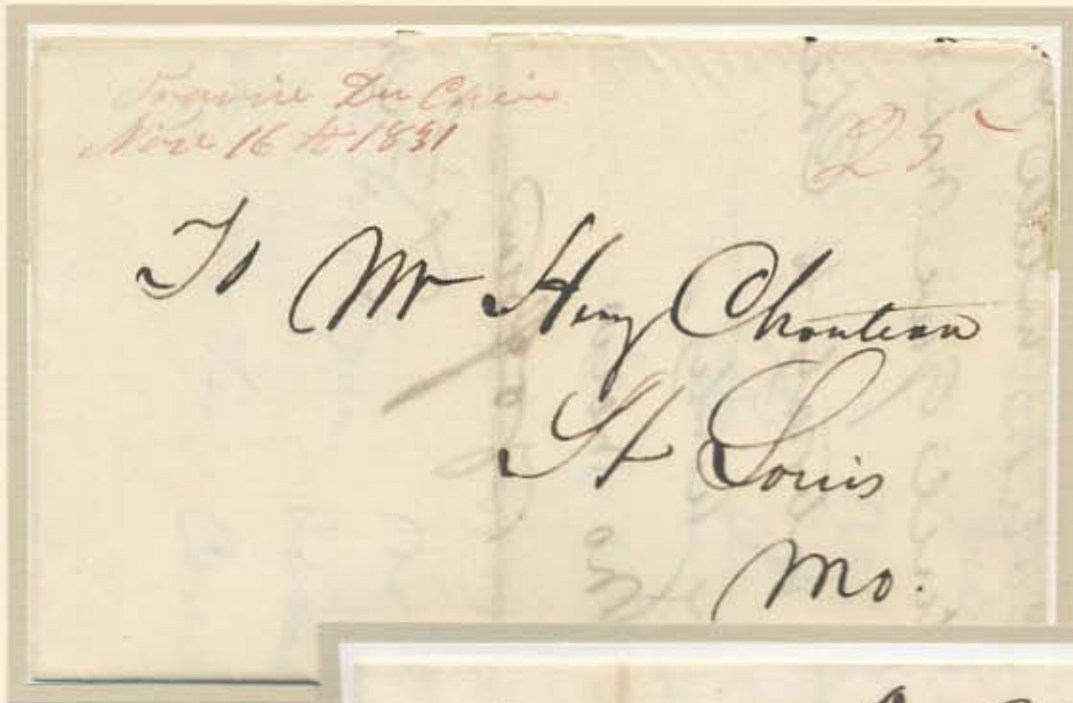 Prairie Du Chein
Nov 16th 1831
25
To Mr Henry Chouteau
St Louis
Mo.